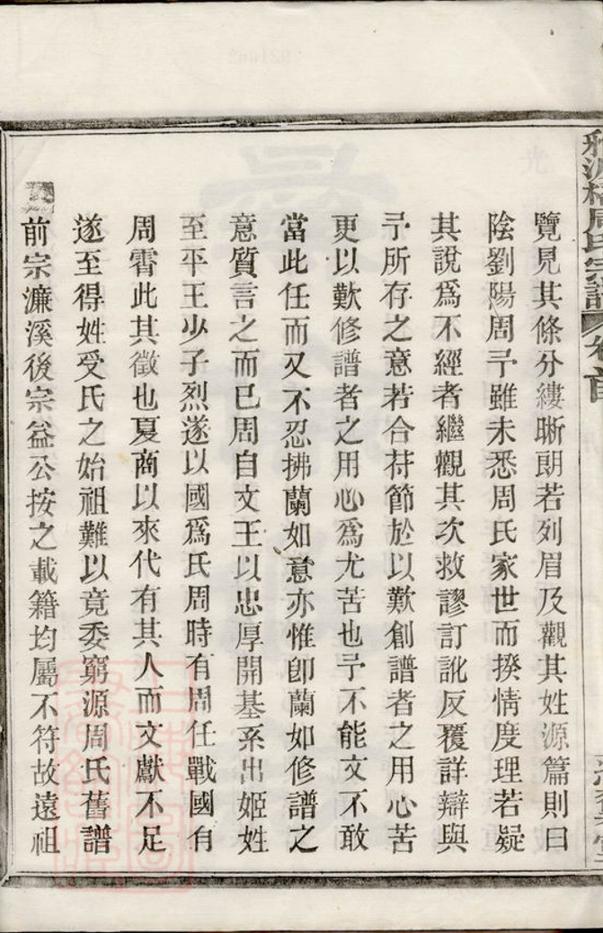 周氏宗譜
覽見其條分縷晰朗若列眉及觀其姓源篇則曰
陰劉陽周予雖未悉周氏家世而揆情度理若疑
其說爲不經者繼觀其次救謬訂訛反覆詳辯與
予所存之意若合苻節於以歎創譜者之用心苦
更以歎修譜者之用心爲尤苦也予不能文不敢
當此任而又不忍拂蘭如意亦惟卽蘭如修譜之
意質言之而已周自文王以忠厚開基系出姬姓
至平王少子烈遂以國爲氏周時有周任戰國有
周霄此其徵也夏商以來代有其人而文獻不足
遂至得姓受氏之始祖難以竟委窮源周氏舊譜
前宗濂溪後宗益公按之載籍均屬不符故遠祖